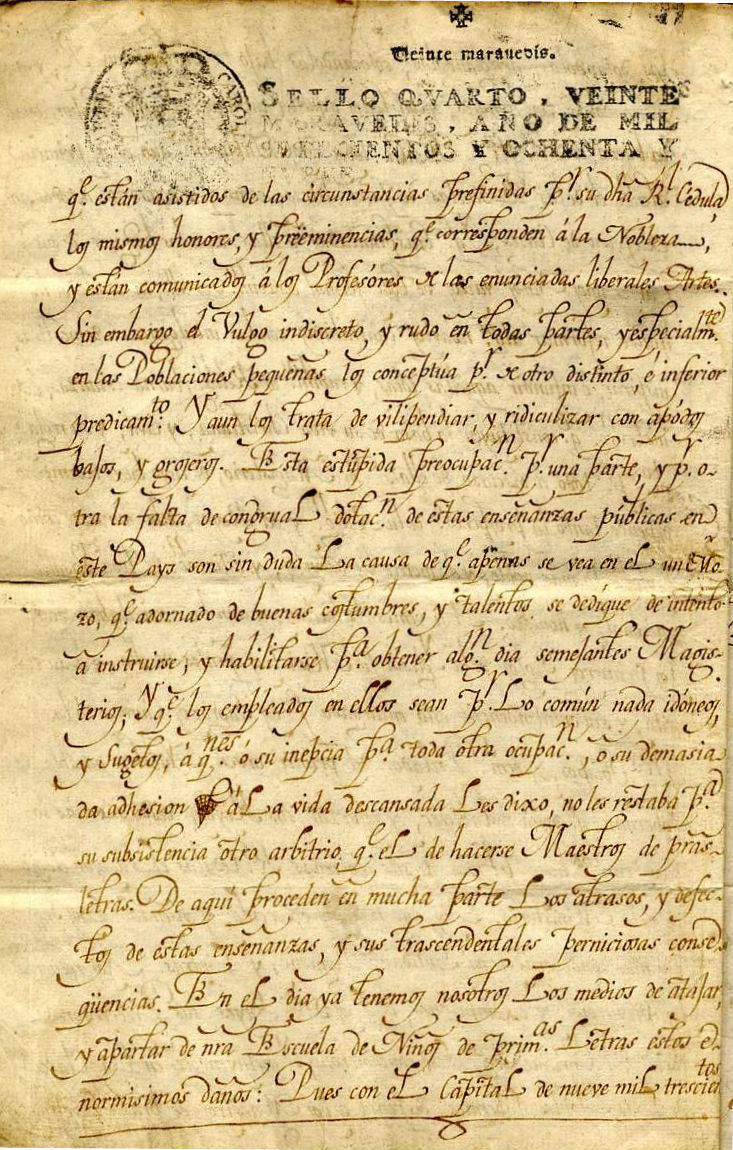 Veinte maravedis.
SELLO QVARTO, VEINTE
MARAVEDIS, AÑO DE MIL
SETECIENTOS Y OCHENTA Y
CAROL
q.e están asistidos de las circunstancias prefinidas p.r su dha R.l Cédula,
los mismos honores, y preëminencias, q.e corresponden á la Nobleza,
y están comunicados á los Profesóres de las enunciadas liberales Artes.
Sin embargo el Vulgo indiscreto, y rudo en todas partes, y especialm.te
en las Poblaciones pequeñas los conceptúa p.r de otro distinto, é inferior
predicam.to: Y aun los trata de vilipendiar, y ridiculizar con apódos
bajos, y groseros. Esta estúpida preocupac.n p.r una parte, y p.r o-
tra la falta de congrual dotac.n de estas enseñanzas públicas en
este Pays son sin duda La causa de q.e apénas se vea en el un Mo
zo, q.e adornado de buenas costumbres, y talentos se dedique de intento
á instruirse, y habilitarse p.a obtener alg.n dia semejantes Magis-
terios; Y q.e los empleados en ellos sean p.r Lo común nada idóneos,
y Sugetos, á q.nes ó su inepcia p.a toda otra ocupac.n, ó su demasia
da adhesion á La vida descansada Les dixo, no les restaba p.a
su subsistencia otro arbitrio, q.e eL de hacerse Maestros de prãs
letras. De aquí proceden en mucha parte Los atrasos, y defec-
tos de estas enseñanzas, y sus trascendentales perniciosas conse-
qüencias. En eL dia ya tenemos nosotros Los medios de atajar,
y apartar de nrã Escuela de Niños de prim.as Letras estos e-
normisimos daños: Pues con eL CapitaL de nueve miL trescien
tos